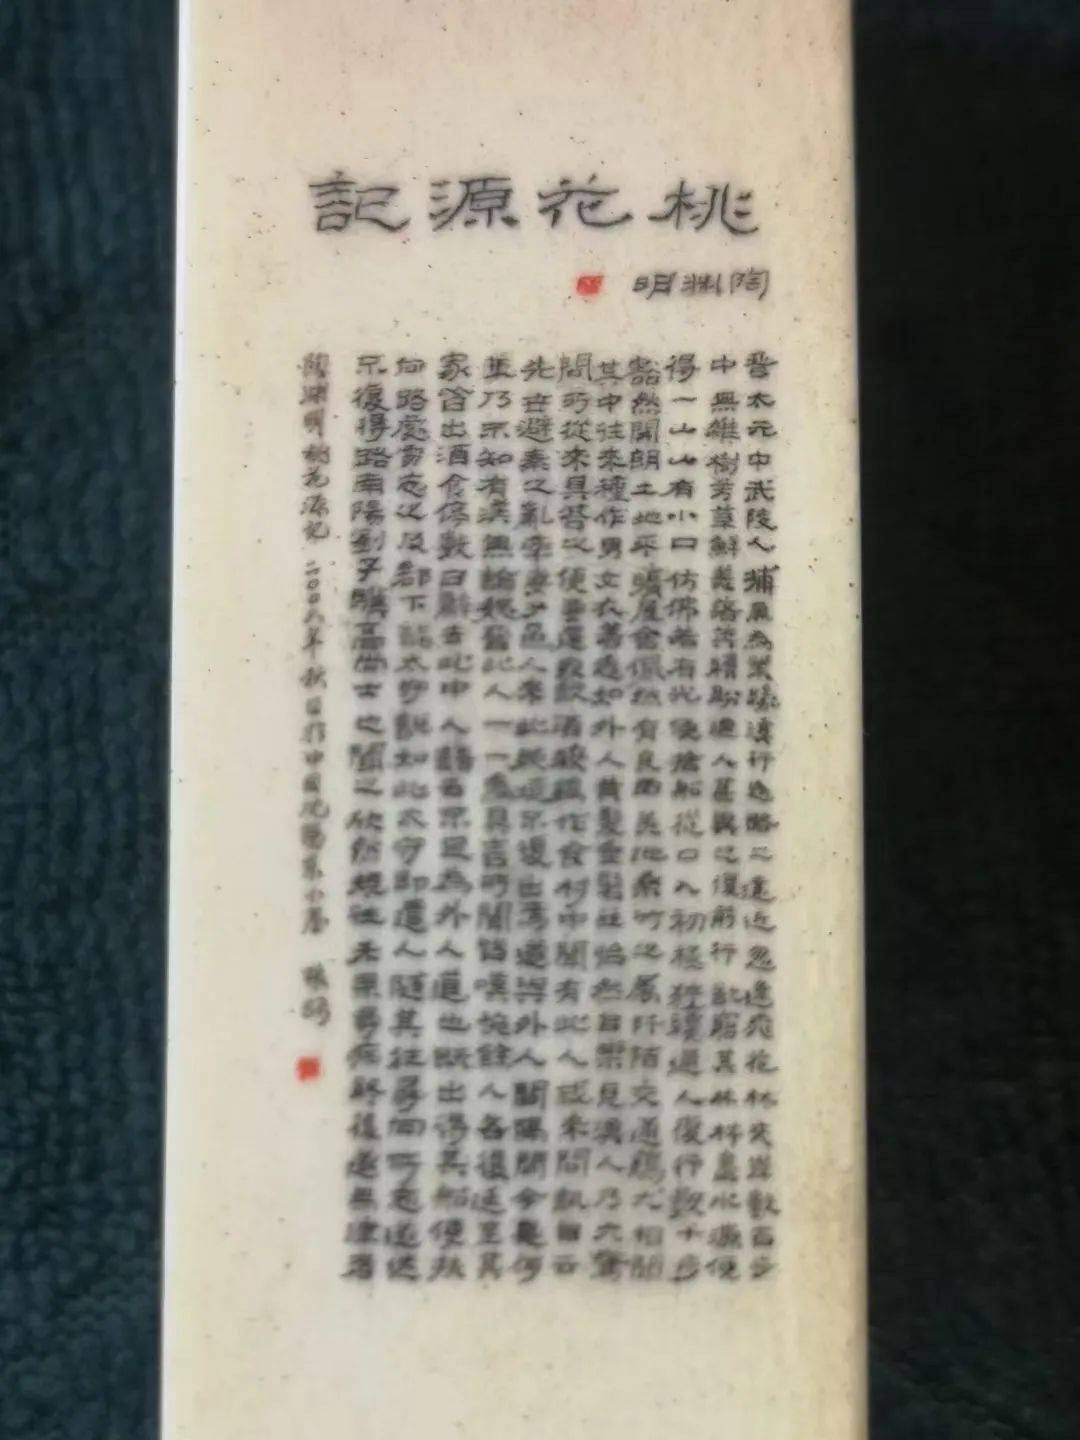 桃花源記
陶渊明
晋太元中武陵人捕魚為業緣溪行忘路之遠近忽逢桃花林夾岸數百步
中無雜樹芳草鮮美落英繽紛漁人甚異之復前行欲窮其林林盡水源便
得一山山有小口仿佛若有光便舍船從口入初極狹纔通人復行數十步
豁然開朗土地平曠屋舍儼然有良田美池桑竹之屬阡陌交通鷄犬相聞
其中往來種作男女衣著悉如外人黃髮垂髫並怡然自樂見漁人乃大驚
問所從來具答之便要還家設酒殺鷄作食村中聞有此人咸來問訊自云
先世避秦之亂率妻子邑人來此絕境不復出焉遂與外人間隔問今是何
世乃不知有漢無論魏晉此人一一為具言所聞皆嘆惋餘人各復延至其
家皆出酒食停數日辭去此中人語云不足為外人道也既出得其船便扶
向路處處志之及郡下詣太守說如此太守即遣人隨其往尋向所志遂迷
不復得路南陽劉子驥高尚士也聞之欣然規往未果尋病終後遂無津者
陶渊明桃花源記 二〇〇六年秋日於中国沈陽